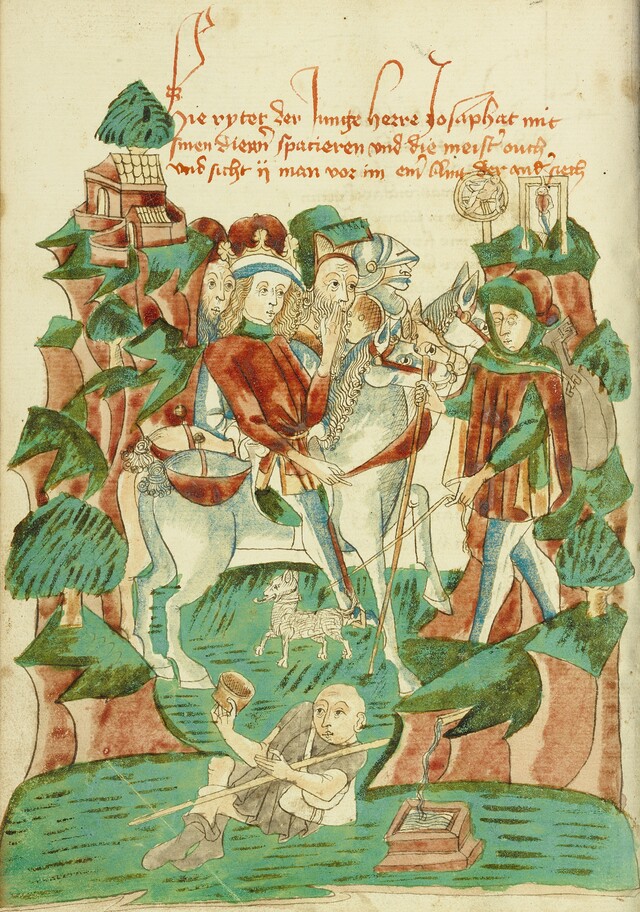 Hie rytet der Junge herre Josaphat mit
sinen dienern spatieren vnd die meist ouch
vnd sicht ij man vor im ein blint der ander siech